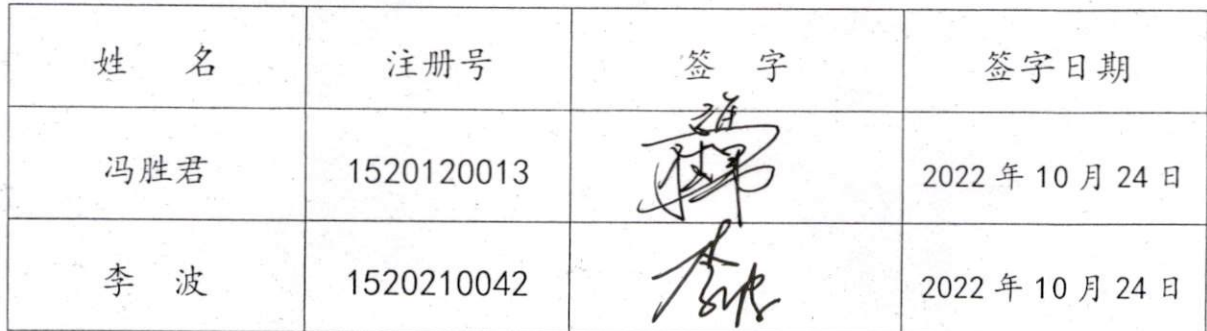 姓 名 注册号 签 字 签字日期
冯胜君 1520120013 2022年10月24日
李 波 1520210042 李波 2022年10月24日